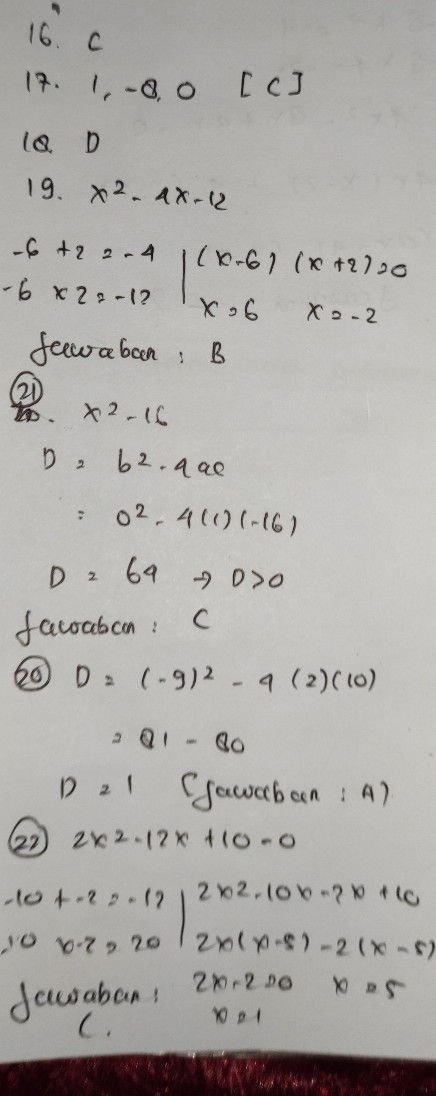 16. C
17. 1, -8, 0 [C]
18. D
19. x² - 4x - 12
-6 + 2 = -4 | (x-6) (x+2) = 0
-6 x 2 = -12 | x = 6 x = -2
Jawaban : B
21. x² - 16
D = b² - 4ac
= 0² - 4(1)(-16)
D = 64 → D>0
Jawaban : C
20 D = (-9)² - 4 (2)(10)
= 81 - 80
D = 1 (Jawaban : A)
22 2x² - 12x + 10 = 0
-10 + -2 = -12 | 2x² - 10x - 2x + 10
-10 x -2 = 20 | 2x(x-5) - 2(x-5)
Jawaban : 2x - 2 = 0 x = 5
C. x = 1